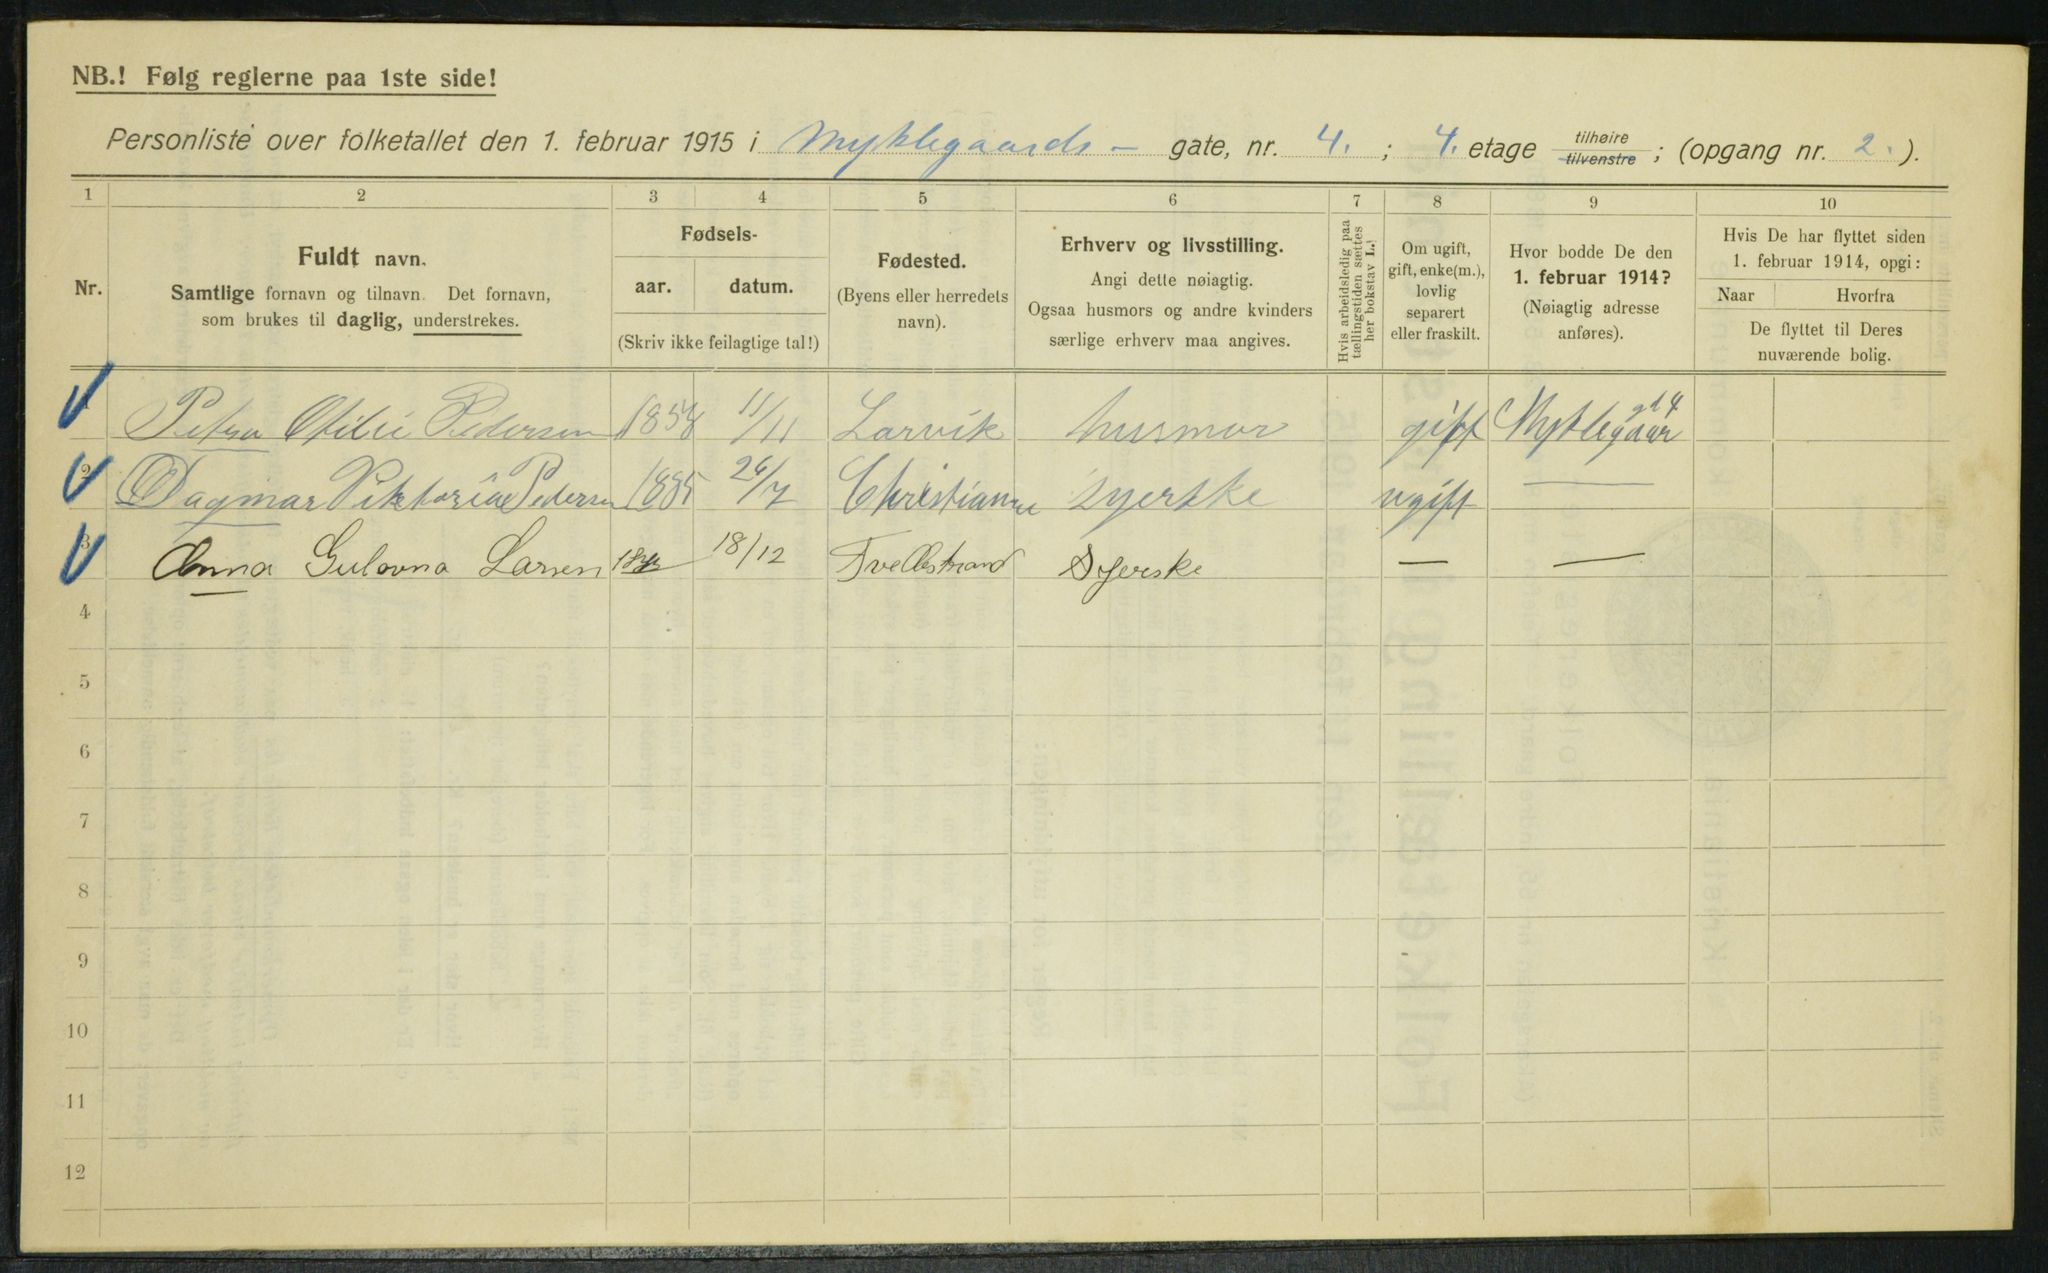 NB.! Følg reglerne paa 1ste side!
Personliste over folketallet den 1. februar 1915 i Myklegaards - gate, nr. 4. ; 4. etage tilhøire tilvenstre ; (opgang nr. 2. ).
1 2 3 4 5 6 7 8 9 10
Nr.
Fuldt navn.
Samtlige fornavn og tilnavn. Det fornavn,
som brukes til daglig, understrekes.
Fødsels-
aar. datum.
(Skriv ikke feilagtige tal!)
Fødested.
(Byens eller herredets
navn).
Erhverv og livsstilling.
Angi dette nøiagtig.
Ogsaa husmors og andre kvinders
særlige erhverv maa angives.
Hvis arbeidsledig paa
tællingstiden sættes
her bokstav L.
Om ugift,
gift, enke(m.),
lovlig
separert
eller fraskilt.
Hvor bodde De den
1. februar 1914?
(Nøiagtig adresse
anføres).
Hvis De har flyttet siden
1. februar 1914, opgi:
Naar Hvorfra
De flyttet til Deres
nuværende bolig.
1 Petra Otilie Pedersen 1858 11/11 Larvik husmor gift Myklegaar gt 4
2 Dagmar Viktoria Pedersen 1885 24/7 Christiania syerske ugift —
3 Anna Gulovna Larsen 18/12 Tvedestrand Syerske — —
4
5
6
7
8
9
10
11
12